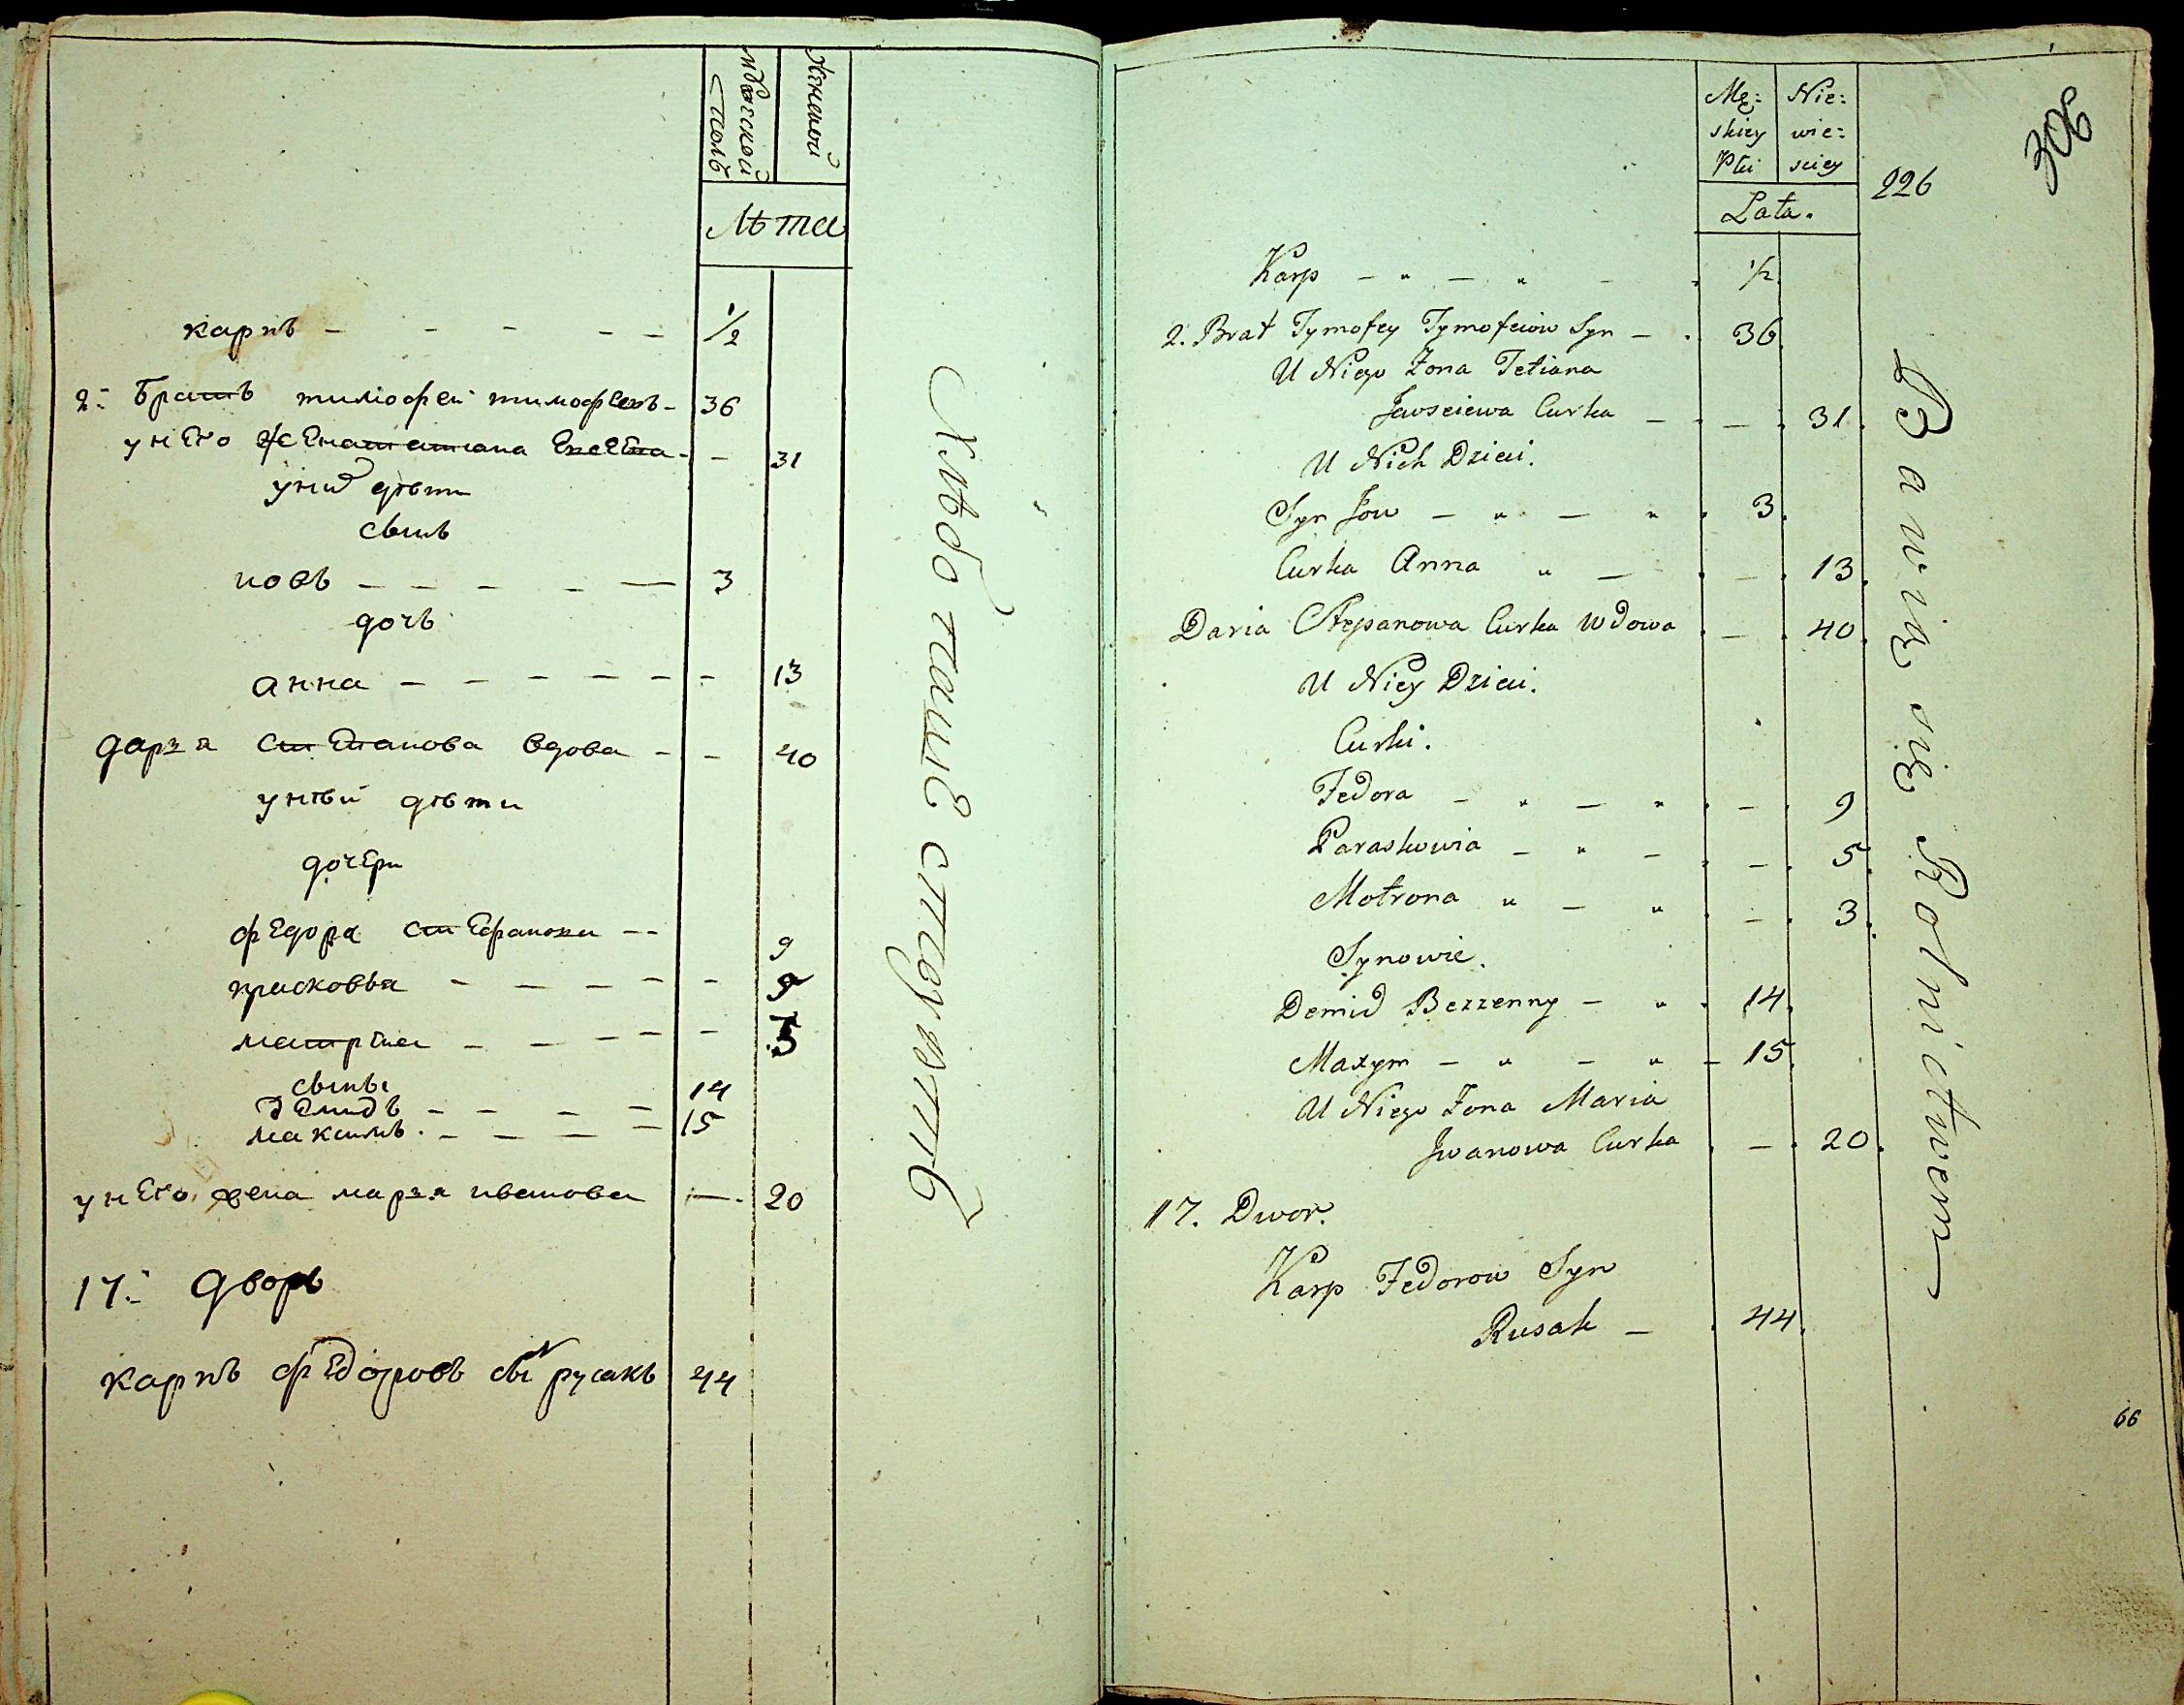 мужеской
полъ
женской
Лѣта
карпъ — — — — — 1/2
2: братъ тимофей тимофеевъ — 36
у него жена татиана евсеева — — 31
у них дѣти
сынъ
иовъ — — — — — 3
дочь
анна — — — — — — — 13
дарья степанова вдова — — 40
у ней дѣти
дочери
федора стефанова — — 9
прасковья — — — — — 9
матрена — — — — — 5
сыны
демидъ — — — — 14
максимъ — — — — 15
у него жена марья иванова — 20
17: дворъ
карпъ федоровъ сын русакъ 44
Хлѣбопашествуютъ
Mę: skiey Płci
Nie: wie: sciey
Lata.
226
306
Karp — " — " — 1/2
2. Brat Tymofey Tymofeiow Syn — 36
U Niego Żona Tetiana
Jewseiewa Curka — — 31
U Nich Dzieci.
Syn Jow — " — " 3
Curka Anna " — — 13
Daria Stepanowa Curka Wdowa — 40
U Niey Dzieci.
Curki.
Fedora — " — " — 9
Paraskowia — " — — 5
Motrona " — " — 3
Synowie.
Demid Bezzenny — " 14
Maxym — " — " — 15
U Niego Żona Maria
Jwanowa Curka — 20
17. Dwor.
Karp Fedorow Syn
Rusak — 44
Bawią się Rolnictwem
66